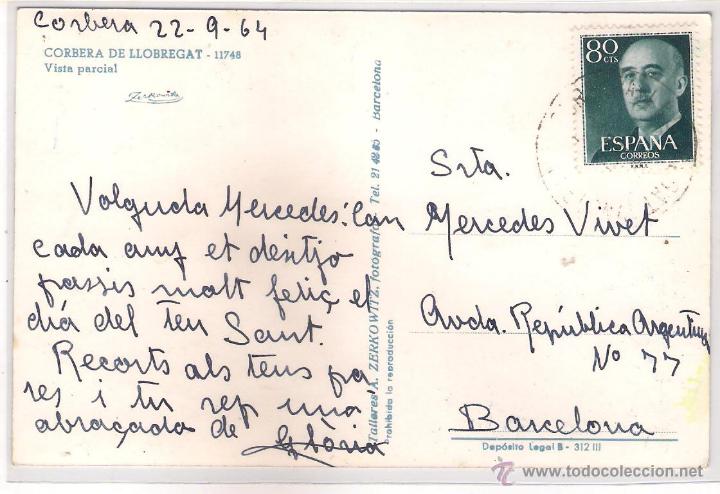 Corbera 22-9-64
CORBERA DE LLOBREGAT - 11748
Vista parcial
Zerkowitz
Volguda Mercedes: Com
cada any et desitjo
passis molt feliç el
dia del teu Sant.
Recorts als teus pa
res i tu rep una
abraçada de Glòria
Talleres A. ZERKOWITZ, fotógrafo - Tel. - Barcelona
Prohibida la reproducción
80
CTS
ESPAÑA
CORREOS
F.N.M.T.
Srta.
Mercedes Vivet
Avda. República Argentina
Nº 77
Barcelona
Depósito Legal B - 312 III
www.todocoleccion.net